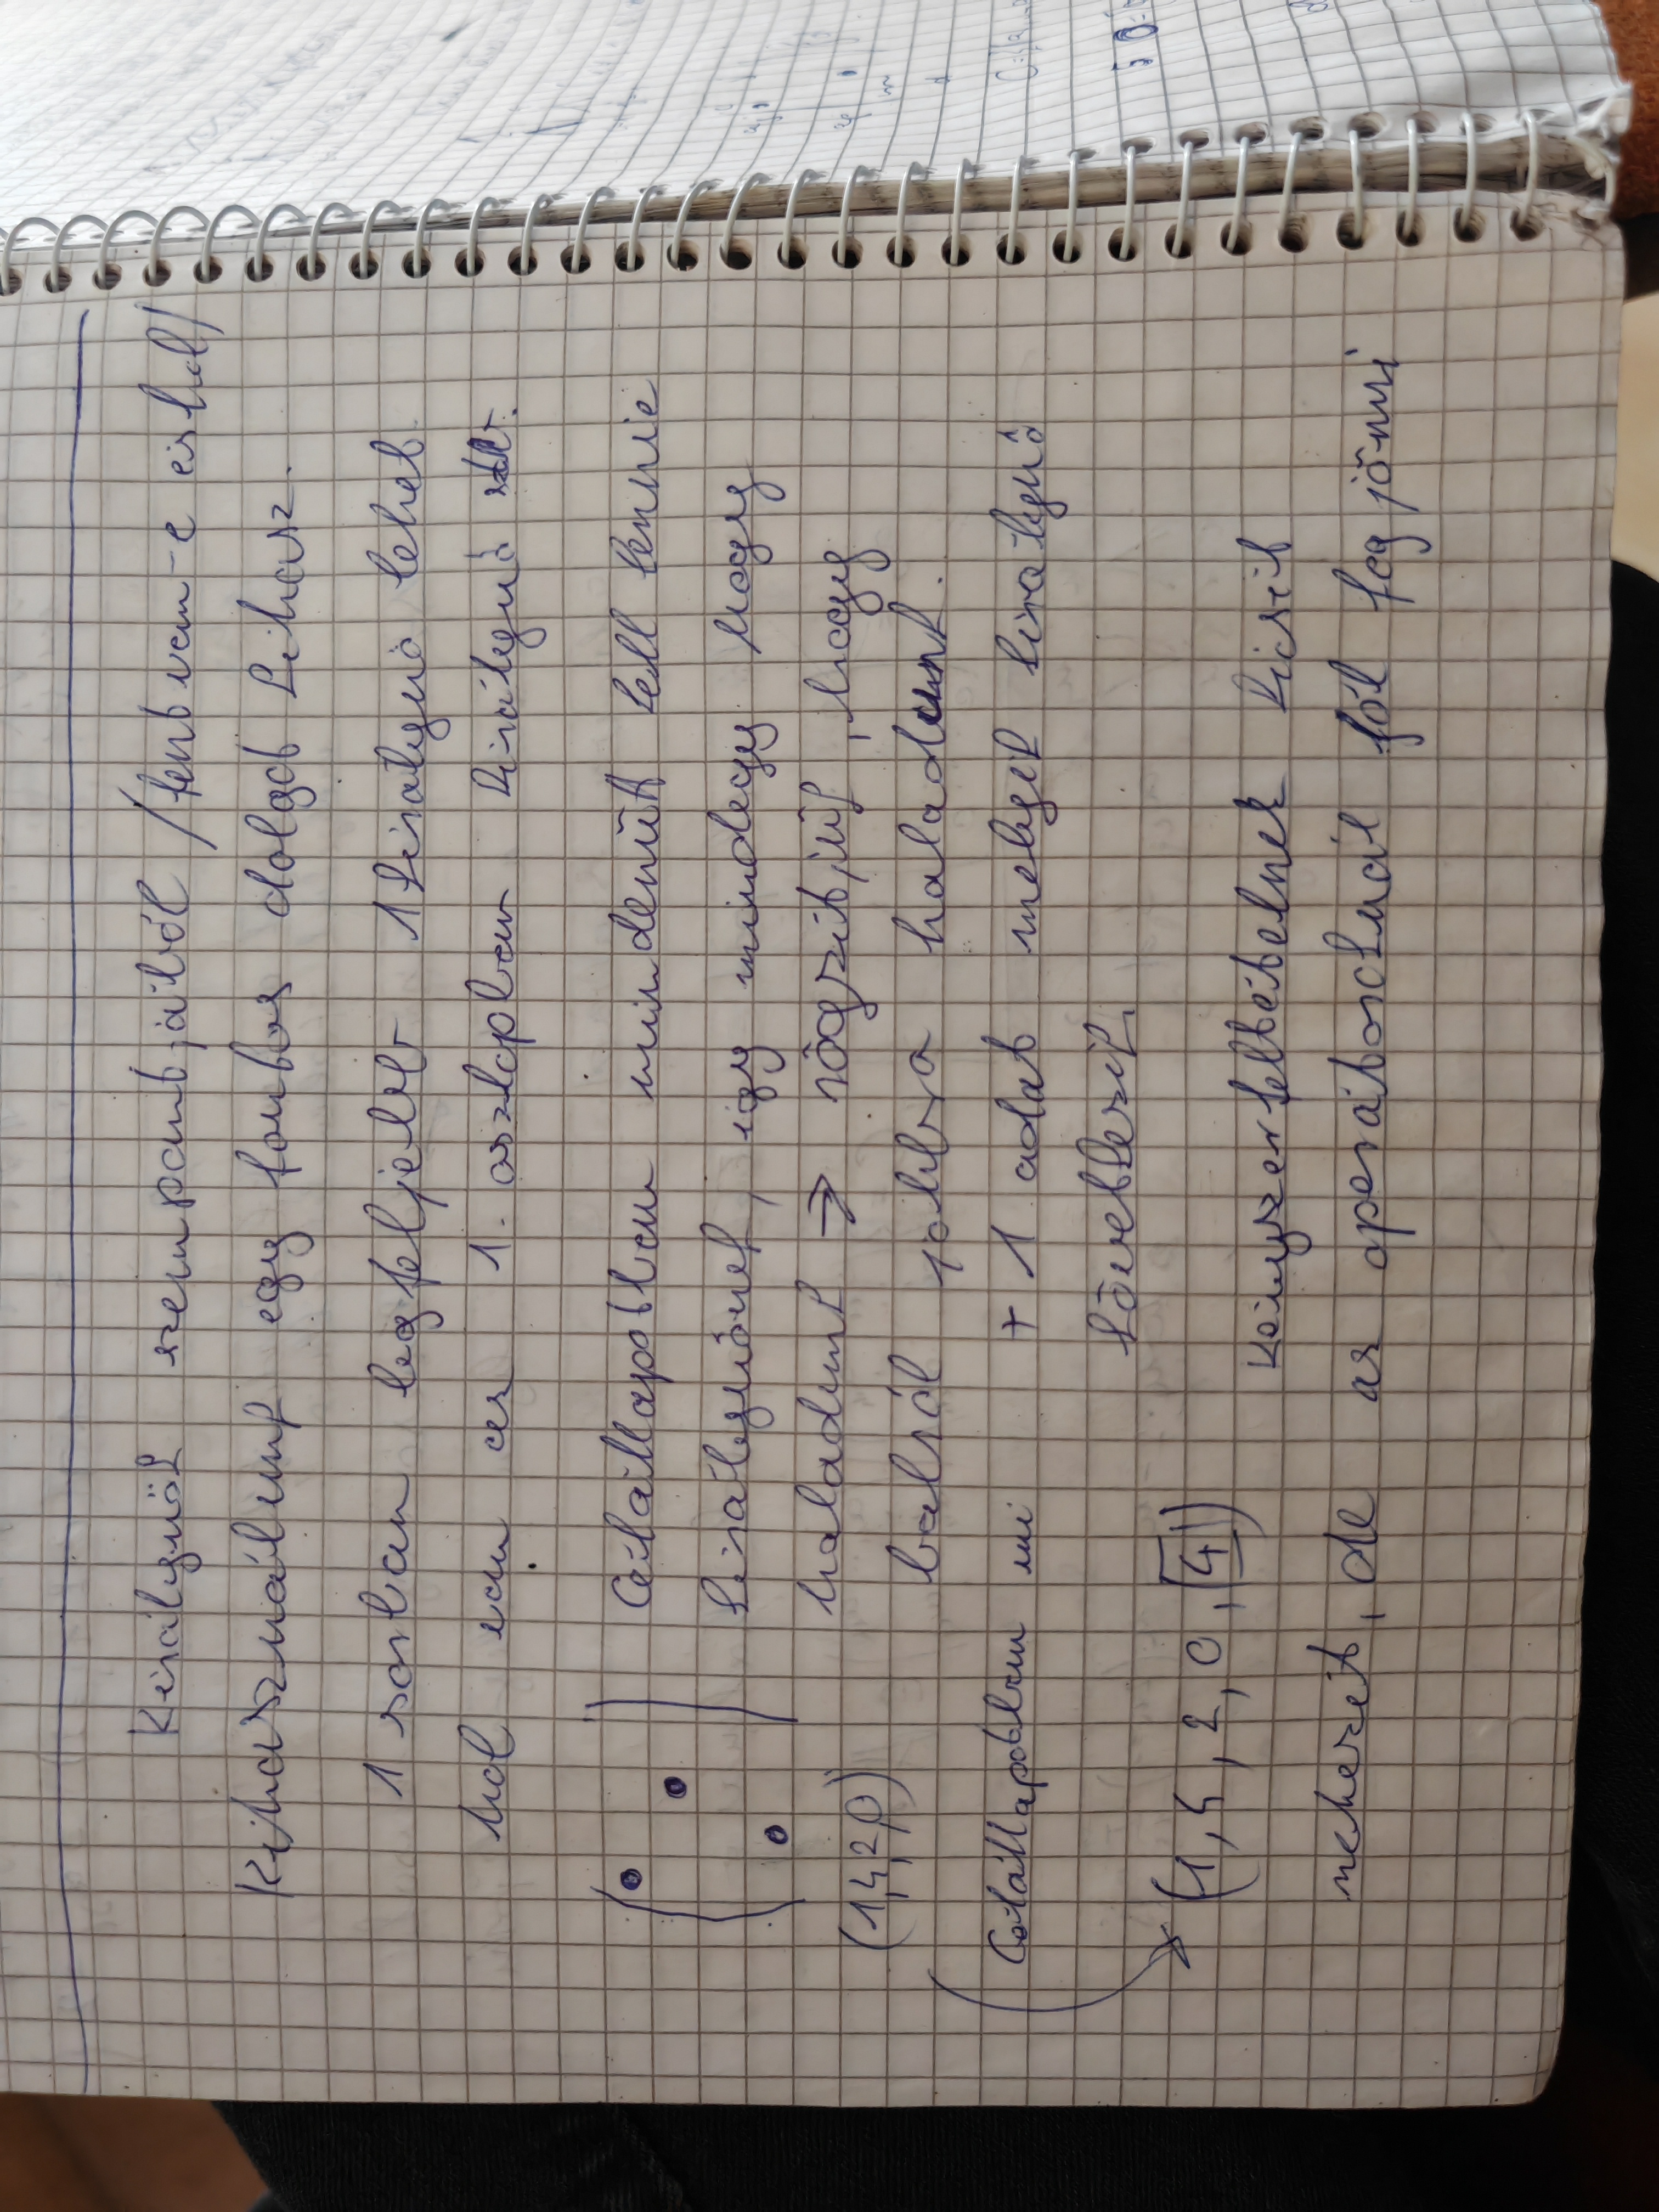 Királynők szempontjából /fent van-e és hol/
Kihasználunk egy fontos dolgot kihasz.
1 sorban legfeljebb 1 királynő lehet.
hol van az 1. oszlopban királynő stb.
Célállapotban mindenütt kell lennie
királynőnek, így mindegy hogy
haladunk → rögzítjük, hogy
(1,4,2,0)
balról jobbra haladunk.
Célállapotban mi + 1 adat melyik királynő
következik.
(1, 4, 2, 0, 4)
Kényszerfeltételnek kicsit
nehezít, de az operátoroknál jól fog jönni